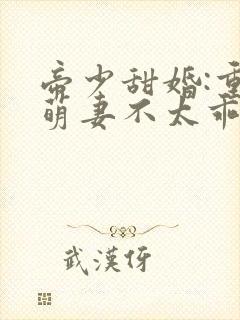 帝少甜婚:重
萌妻不太乖
武漢伢